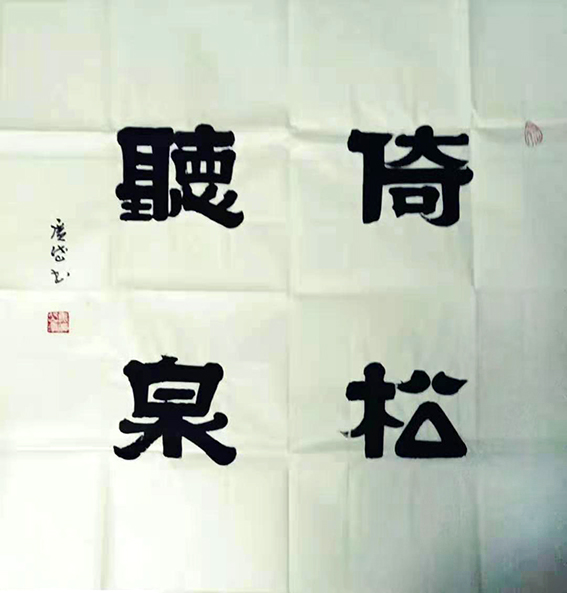 倚松
聽泉